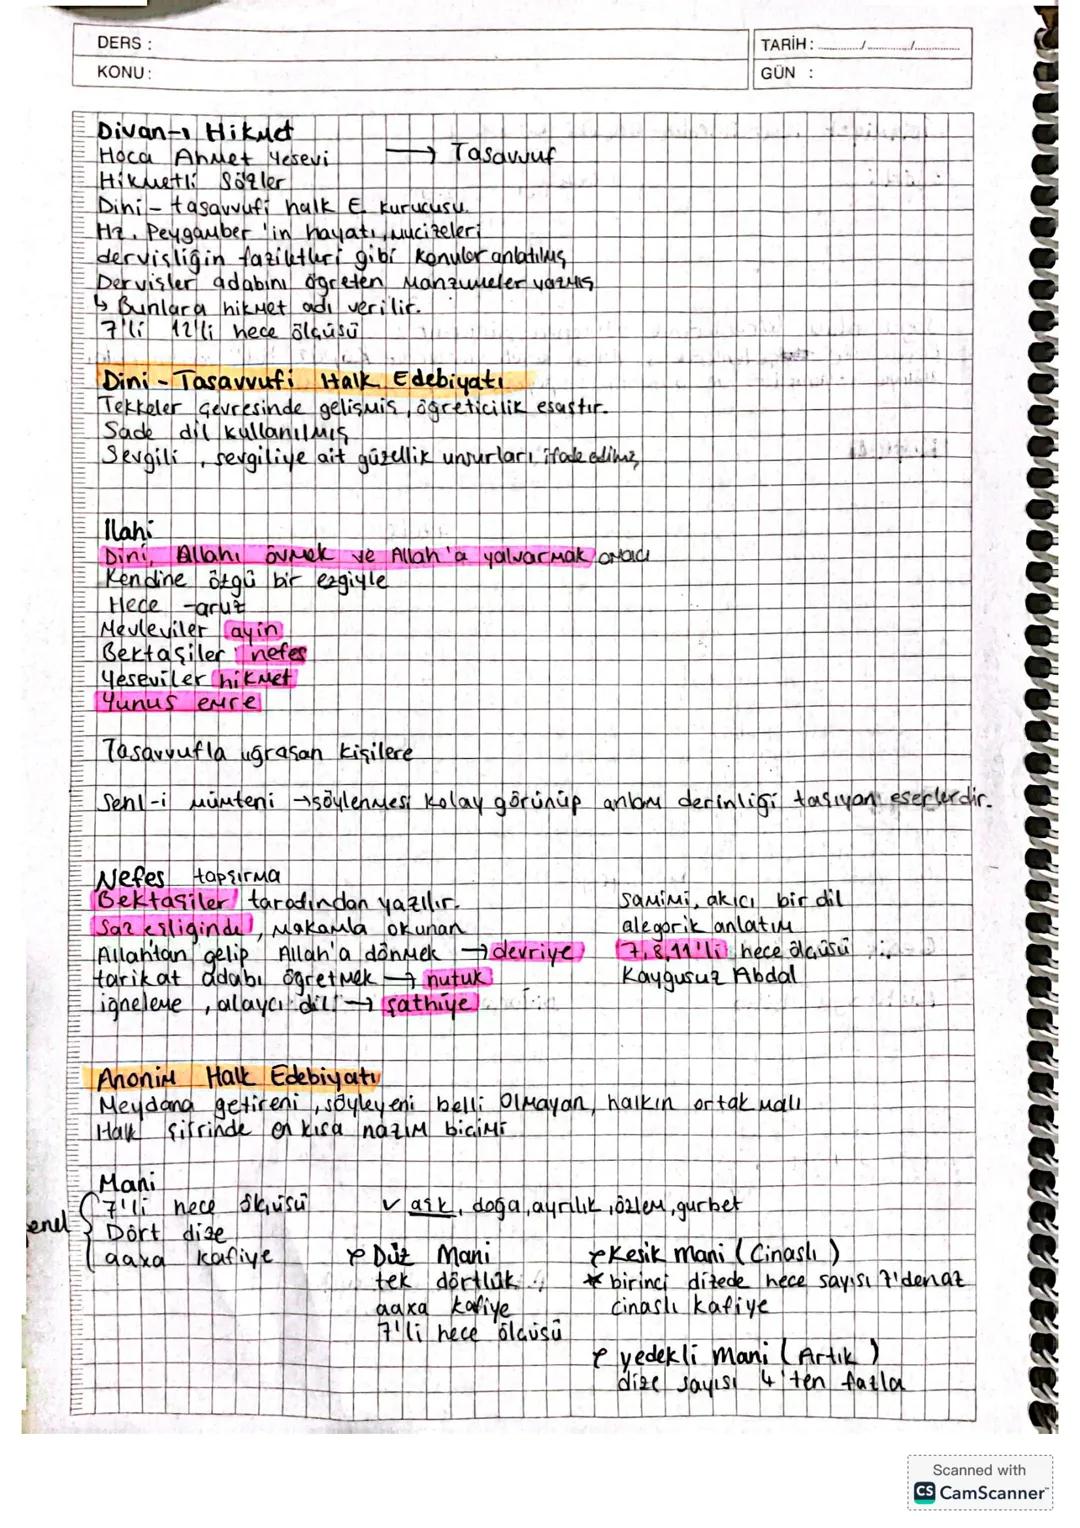 DERS :
KONU :
TARİH : ............/............/............
GÜN :
Divan-ı Hikmet
Hoca Ahmet Yesevi → Tasavvuf
Hikmetli Sözler
Dini - tasavvufi halk E. kurucusu.
Hz. Peygamber 'in hayatı, mucizeleri
dervişliğin faziletleri gibi konular anlatılmış
Dervişler adabını öğreten manzumeler yazmış
↳ Bunlara hikmet adı verilir.
7'li 12'li hece ölçüsü
Dini - Tasavvufi Halk Edebiyatı
Tekkeler çevresinde gelişmiş, öğreticilik esastır.
Sade dil kullanılmış
Sevgili, sevgiliye ait güzellik unsurları ifade edilmiş
İlahi
Dini, Allahı övmek ve Allah'a yalvarmak amacı
Kendine özgü bir ezgiyle
Hece - aruz
Mevleviler ayin
Bektaşiler nefes
Yeseviler hikmet
Yunus emre
Tasavvufla uğraşan kişilere
Sehl-i mümteni → söylenmesi kolay görünüp anlam derinliği taşıyan eserlerdir.
Nefes tapşırma
Bektaşiler tarafından yazılır.
Saz eşliğinde, makamla okunan
Allahtan gelip Allah'a dönmek → devriye
tarikat adabı öğretmek → nutuk
iğneleme, alaycı dil → şathiye
samimi, akıcı bir dil
alegorik anlatım
7, 8, 11'li hece ölçüsü
Kaygusuz Abdal
Anonim Halk Edebiyatı
Meydana getireni, söyleyeni belli olmayan, halkın ortak malı
Halk şiirinde en kısa nazım biçimi
Mani
enel
7'li hece ölçüsü
Dört dize
aaxa kafiye
✓ aşk, doğa, ayrılık, özlem, gurbet
Düz Mani
tek dörtlük
aaxa kafiye
7'li hece ölçüsü
Kesik mani (Cinaslı)
* birinci dizede hece sayısı 7'den az
cinaslı kafiye
yedekli mani (Artık)
dize sayısı 4'ten fazla
Scanned with
CS CamScanner